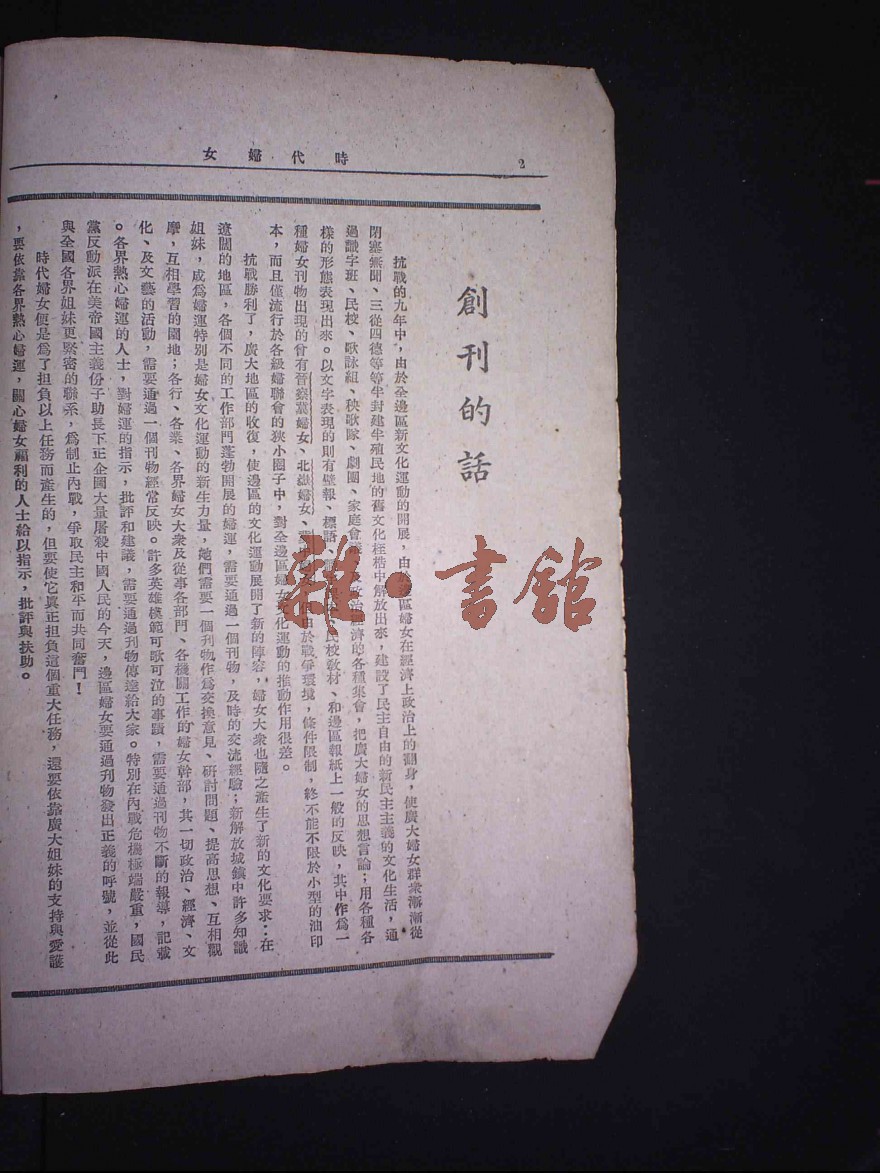 時代婦女
2
創刊的話
抗戰的九年中，由於全邊區新文化運動的開展，由於邊區婦女在經濟上政治上的翻身，使廣大婦女群衆漸漸從
閉塞無聞、三從四德等等半封建半殖民地的舊文化桎梏中解放出來，建設了民主自由的新民主主義的文化生活，通
過識字班、民校、歌詠組、秧歌隊、劇團、家庭會議、及政治經濟的各種集會，把廣大婦女的思想言論；用各種各
樣的形態表現出來。以文字表現的則有壁報、標語、民校教材、和邊區報紙上一般的反映，其中作爲一
種婦女刊物出現的曾有晉察冀婦女、北嶽婦女、由於戰爭環境，條件限制，終不能不限於小型的油印
本，而且僅流行於各級婦聯會的狹小圈子中，對全邊區婦女文化運動的推動作用很差。
抗戰勝利了，廣大地區的收復，使邊區的文化運動展開了新的陣容，婦女大衆也隨之產生了新的文化要求：在
遼闊的地區，各個不同的工作部門蓬勃開展的婦運，需要通過一個刊物，及時的交流經驗；新解放城鎮中許多知識
姐妹，成爲婦運特別是婦女文化運動的新生力量，她們需要一個刊物作爲交換意見、研討問題、提高思想、互相觀
摩，互相學習的園地；各行、各業、各界婦女大衆及從事各部門、各機關工作的婦女幹部，其一切政治、經濟、文
化、及文藝的活動，需要通過一個刊物經常反映。許多英雄模範可歌可泣的事蹟，需要通過刊物不斷的報導，記載
。各界熱心婦運的人士，對婦運的指示，批評和建議，需要通過刊物傳達給大家。特別在內戰危機極端嚴重，國民
黨反動派在美帝國主義份子助長下正企圖大量屠殺中國人民的今天，邊區婦女要通過刊物發出正義的呼號，並從此
與全國各界姐妹更緊密的聯系，爲制止內戰，爭取民主和平而共同奮鬥！
時代婦女便是爲了担負以上任務而產生的，但要使它眞正担負這個重大任務，還要依靠廣大姐妹的支持與愛護
，要依靠各界熱心婦運，關心婦女福利的人士給以指示，批評與扶助。
雜書館